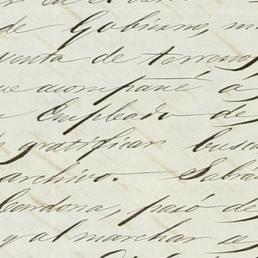 de Gobierno, m
uenta de terreno,
ue acompañé á
Empleado de
gratificar busca
archivo. Sabra
Cardona, pasó de
y al marchar se